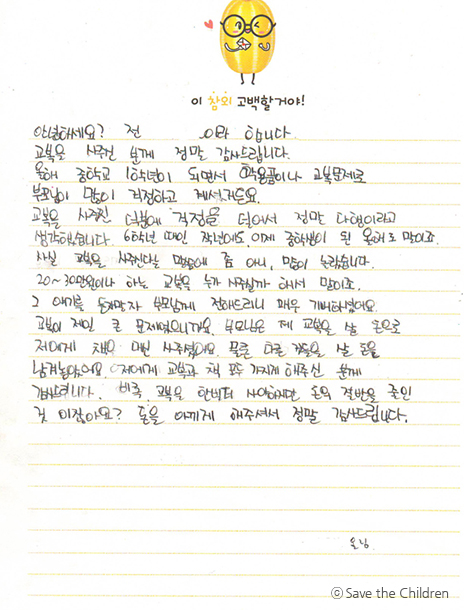 이 참외 고백할거야!
안녕하세요? 전 이라 합니다.
교복을 사주신 분께 정말 감사드립니다.
올해 중학교 1학년이 되면서 학용품이나 교복문제로
부모님이 많이 걱정하고 계셨거든요.
교복을 사주신 덕분에 걱정을 덜어서 정말 다행이라고
생각했습니다. 6학년 때인 작년에도, 이제 중학생이 된 올해도 말이죠.
사실 교복을 사주신다는 말씀에 좀 아니, 많이 놀랐습니다.
20~30만원이나 하는 교복을 누가 사주실까 해서 말이죠.
그 얘기를 듣자마자 부모님께 전해드리니 매우 기뻐하셨어요.
교복이 제일 큰 문제였으니까요. 부모님은 제 교복을 살 돈으로
저에게 책을 대신 사주셨어요. 물론 다른 것들을 살 돈을
남겨놓았어요. 저에게 교복과 책 모두 가지게 해주신 분께
감사드립니다. 비록 교복을 한벌의 사이지만 돈의 절반을 줄인
것 이잖아요? 돈을 아끼게 해주셔서 정말 감사드립니다.
올림
© Save the Children